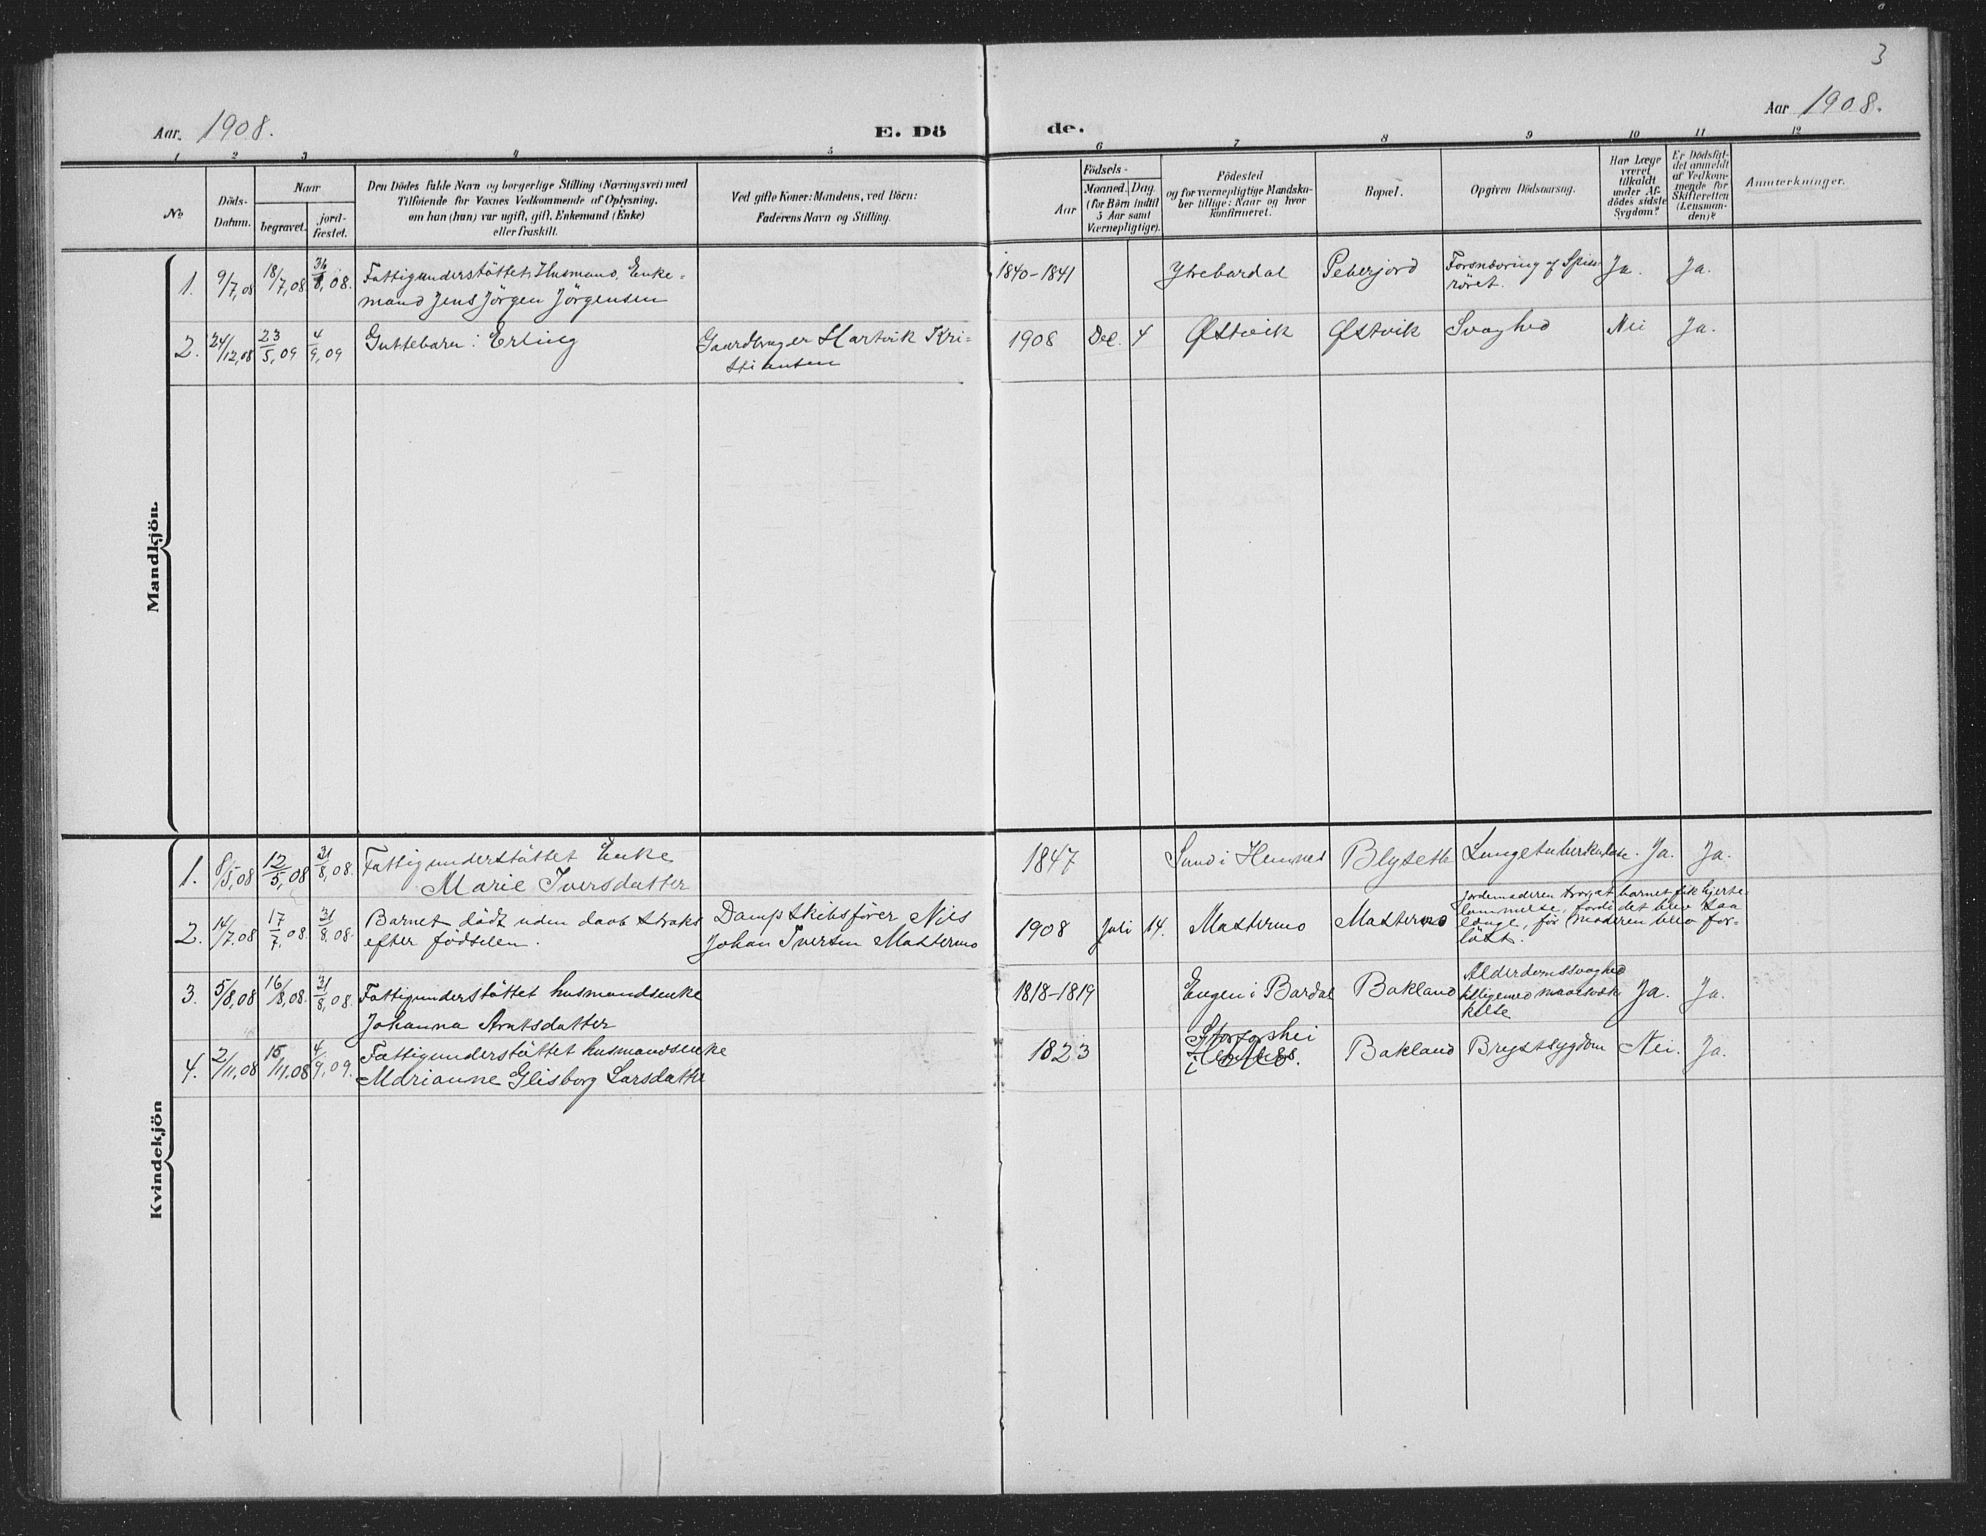 3
Aar. 1908.
E. Dö
de.
Aar 1908.
1 2 3 4 5 6 7 8 9 10 11 12
No
Döds-
Datum.
Naar
begravet.
jord-
fæstet.
Den Dödes fulde Navn og borgerlige Stilling (Næringsvei) med
Tilföiende for Voxnes Vedkommende af Oplysning,
om hun (han) var ugift, gift, Enkemand (Enke)
eller fraskilt.
Ved gifte Koner: Mandens, ved Börn:
Faderens Navn og Stilling.
Födsels-
Aar
Maaned. Dag.
(for Börn indtil
5 Aar samt
Værnepligtige).
Födested
og for værnepligtige Mandska-
ber tillige: Naar og hvor
konfirmeret.
Bopæl.
Opgiven Dödsaarsag.
Har Læge
været
tilkaldt
under Af-
dödes sidste
Sygdom?
Er Dödsfal-
det anmeldt
af Vedkom-
mende for
Skifteretten
(Lensman-
den)?
Anmærkninger.
Mandkjön.
1. 9/7,08 18/7,08 31/8,08. Fattigunderstöttet Husmand, Enke-
mand Jens Jörgen Jörgensen
1840-1841 Ytrebardal Peberjord Forsnævring af Spise-
röret. Ja. Ja.
2. 24/12,08 23/5,09 4/9,09 Guttebarn: Erling Gaardbruger Hartvik Kri-
stiansen
1908 Dec. 4 Østvik Østvik Svaghed Nei Ja.
Kvindekjön
1. 8/5,08 12/5,08 31/8,08. Fattigunderstöttet Enke
Marie Iversdatter
1847 Sund i Hemnes Blyseth Lungetuberkulose. Ja. Ja.
2. 14/7,08 17/7,08. 31/8,08. Barnet dödt uden daab straks
efter födselen.
Dampskibsförer Nils
Johan Iversen Mastermo
1908 Juli 14. Mastermo Mastermo
Jordemoderen tror at barnet fik hjerte-
lammelse, fordi det blev saa
længe, för moderen blev for-
löst.
3. 5/8,08 16/8,08. 31/8,08. Fattigunderstöttet husmandsenke
Johanna Arntsdatter
1818-1819 Engen i Bardal Bakland Alderdomssvaghed
tilligemed
Ja. Ja.
4. 2/11,08 15/11,08 4/9,09. Fattigunderstöttet husmandsenke
Marianne Elisborg Larsdatter
1823
i Hemnes.
Bakland Brystsygdom Nei. Ja.